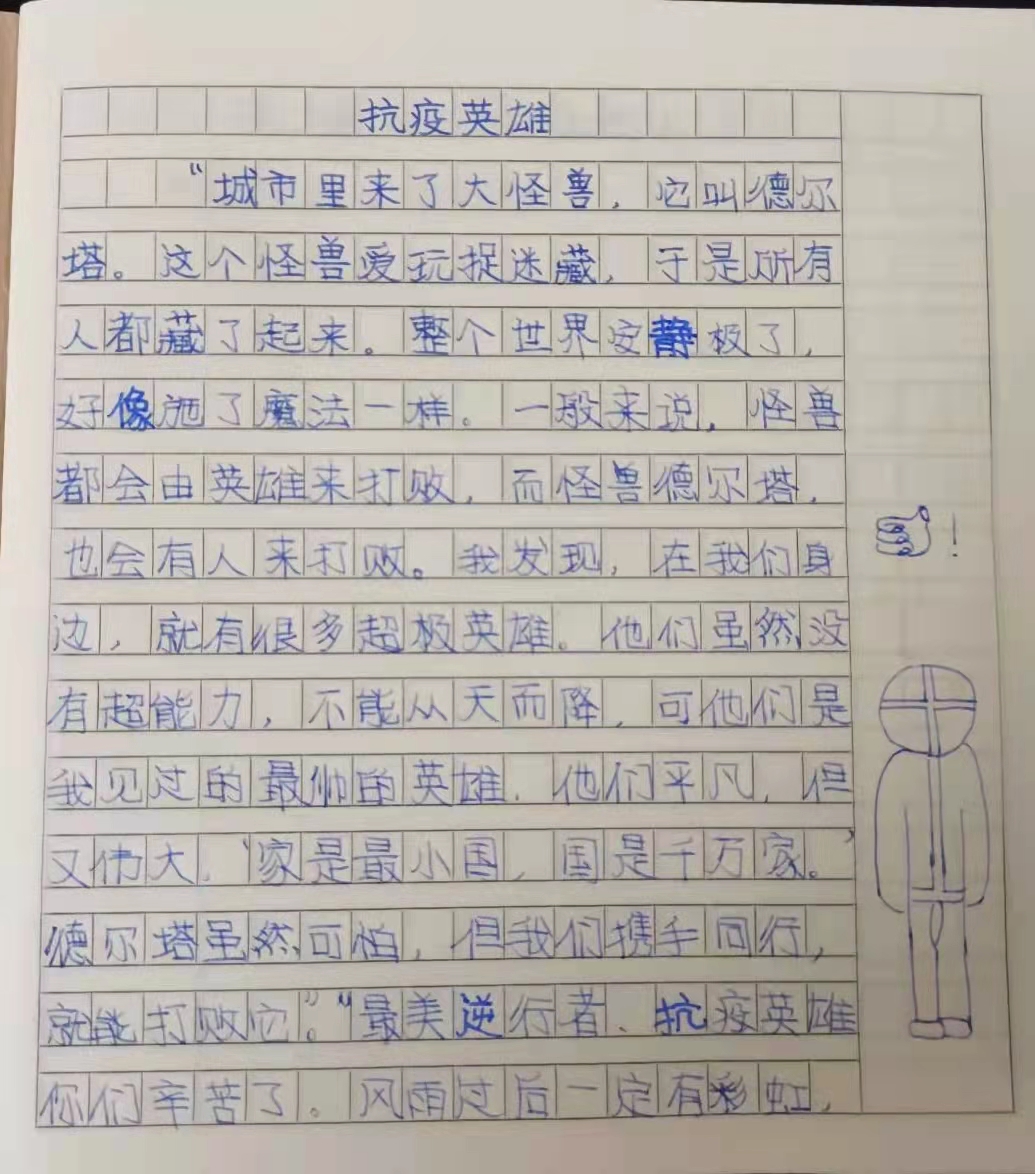 抗疫英雄
“城市里来了大怪兽，它叫德尔
塔。这个怪兽爱玩捉迷藏，于是所有
人都藏了起来。整个世界安静极了，
好像施了魔法一样。一般来说，怪兽
都会由英雄来打败，而怪兽德尔塔，
也会有人来打败。我发现，在我们身
边，就有很多超极英雄。他们虽然没
有超能力，不能从天而降，可他们是
我见过的最帅的英雄．他们平凡，但
又伟大．‘家是最小国，国是千万家。’
德尔塔虽然可怕，但我们携手同行，
就能打败它。”“最美逆行者、抗疫英雄
你们辛苦了。风雨过后一定有彩虹，
！